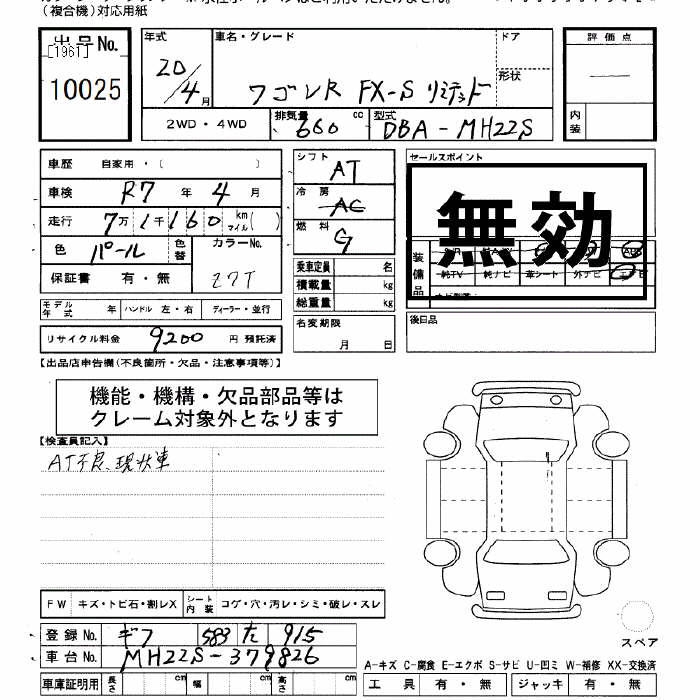 (複合機)対応用紙
出品No.
[1961]
10025
年式
20/4月
車名・グレード
ワゴンR FX-S リミテッド
ドア
形状
評価点
内装
2WD・4WD
排気量 660 cc
型式 DBA-MH22S
車歴 自家用・( )
車検 R7年4月
走行 7万1千160 km マイル( )
色 パール
色替
カラーNo. 27T
保証書 有・無
モデル年式 年
ハンドル 左・右
ディーラー・並行
リサイクル料金 9200 円 預託済
シフト AT
冷房 AC
燃料 G
乗車定員 名
積載量 kg
総重量 kg
名変期限
月 日
セールスポイント
無効
装備品
純TV 純ナビ 革シート 外ナビ
後日品
【出品店申告欄(不良箇所・欠品・注意事項等)】
機能・機構・欠品部品等は
クレーム対象外となります
【検査員記入】
AT不良、現状車
FW キズ・トビ石・割レX
シート内装 コゲ・穴・汚レ・シミ・破レ・スレ
登録No. ギフ 583 た 915
車台No. MH22S-379826
車庫証明用 長さ cm 幅 cm 高さ cm
スペア
A-キズ C-腐食 E-エクボ S-サビ U-凹ミ W-補修 XX-交換済
工具 有・無 ジャッキ 有・無